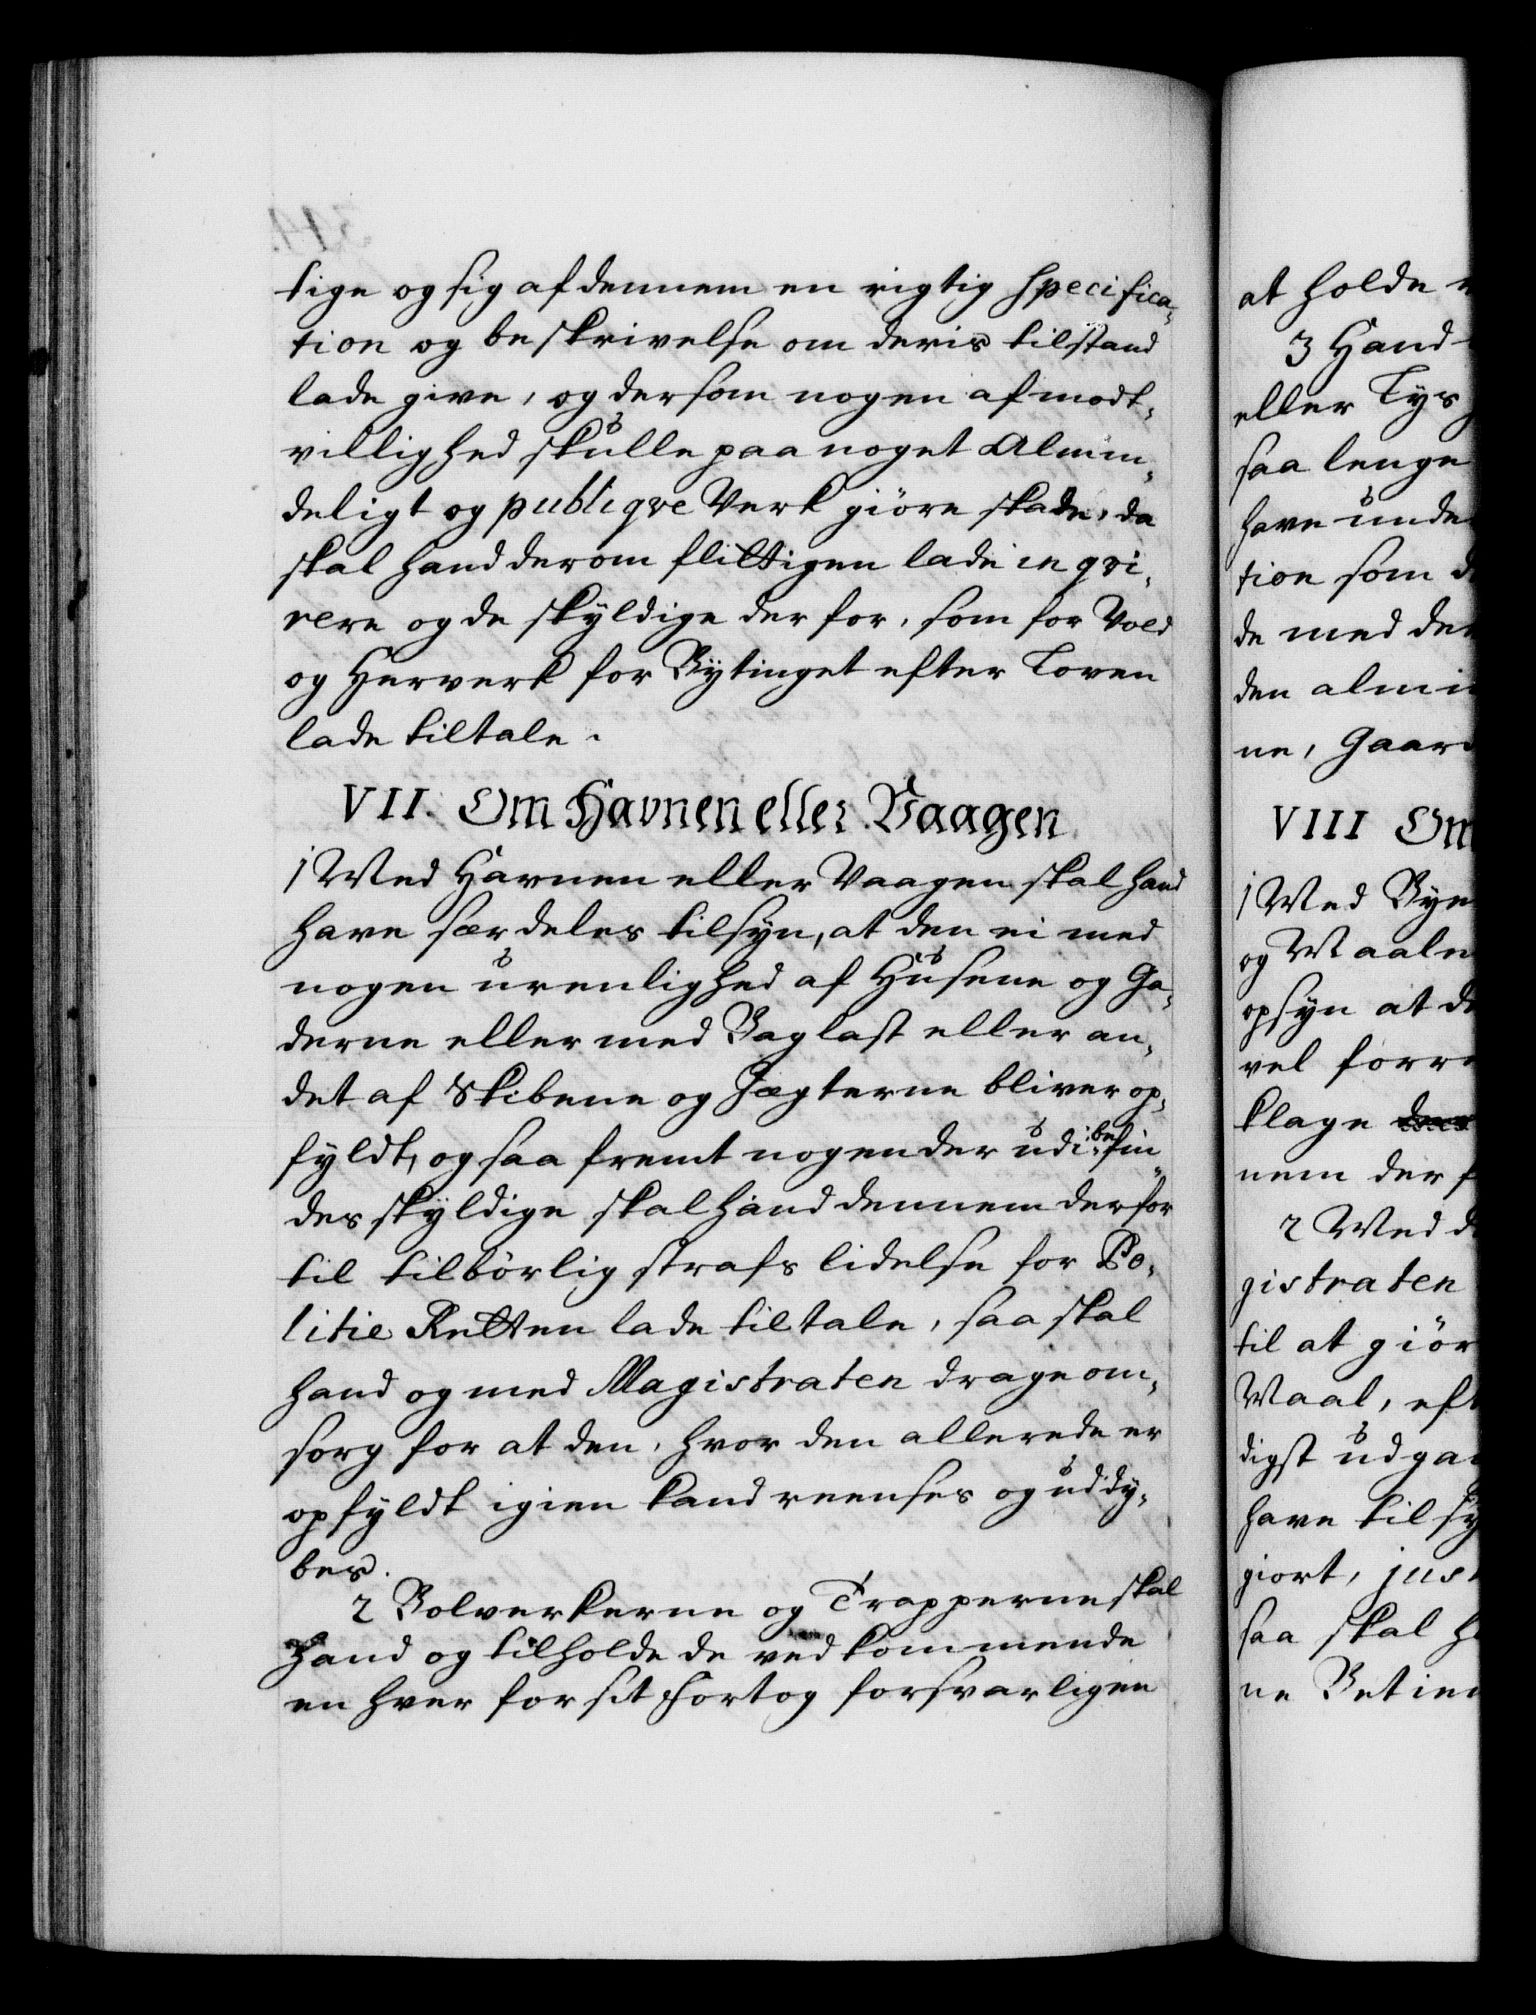 tige og sig af dennem en rigtig specifica-
tion og beskrivelse om deris tilstand
lade give, og dersom nogen af modt-
villighed skulle paa noget Almin-
deligt og publiqve Verk giöre skade, da
skal hand derom flittigen lade inqvi-
rere og de skyldige der for, som for Vold
og Herverk for Bytinget efter Loven
lade tiltale.
VII. Om Havnen eller Vaagen
1 Med Havnen eller Vaagen skal hand
have særdeles tilsyn, at den ei med
nogen urenlighed af Husene og Ga-
derne eller med Baglast eller an-
det af Skibene og Jægterne bliver op-
fyldt, og saa fremt nogen der udi befin-
des skyldige skal hand dennem derfor
til tilbörlig strafs lidelse for Po-
litie Retten lade tiltale, saa skal
hand og med Magistraten drage om-
sorg for at den, hvor den allerede er
opfyldt igien kand reenses og uddy-
bes.
2 Bolverkerne og Trapperne skal
hand og tilholde de vedkommende
en hver for sit fort og forsvarligen
at holde
3 Hand
eller Tys
saa lenge
have unde
tion som d
de med de
den almi
ne, Gaar
VIII Om
1 Med Bye
og Maale
opsyn at d
vel forre
klage
nem der f
2 Med d
gistraten
til at giör
Maal, eft
digst udga
have tilsy
giort, jus
saa skal h
ne Betien